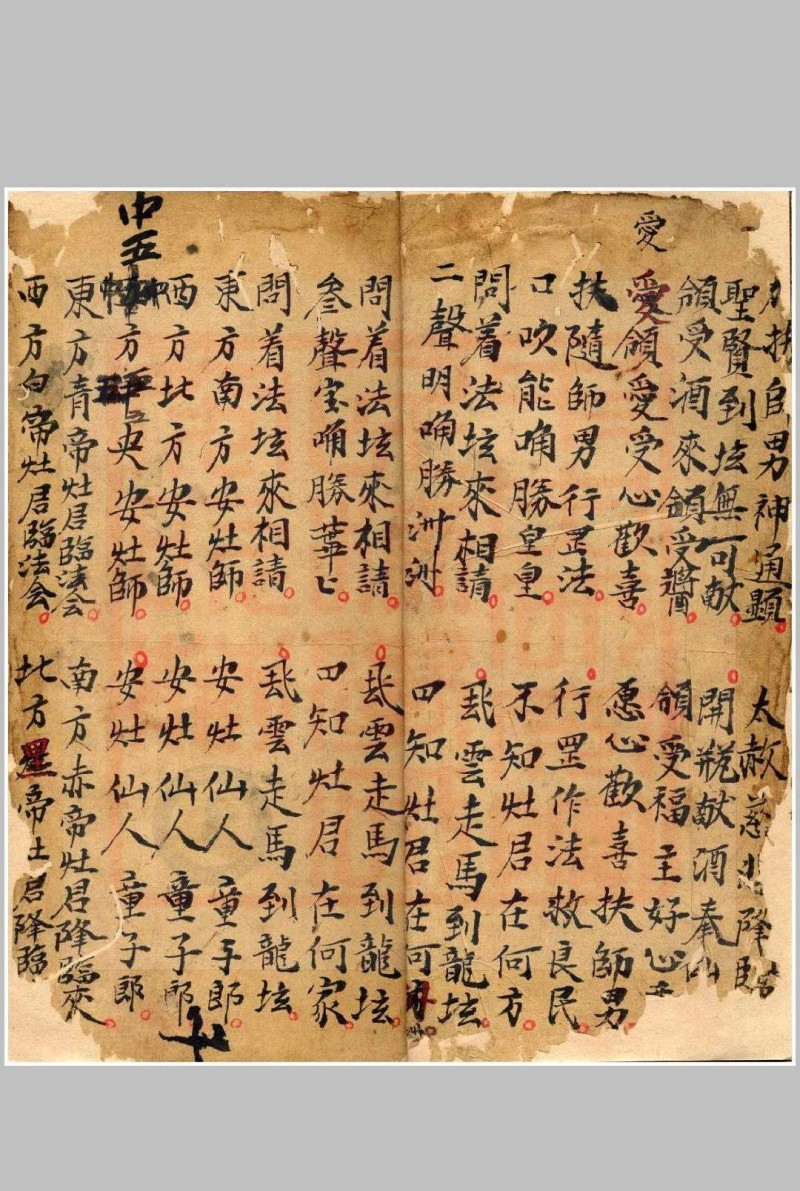 愛
扶師男神通顯 太赦慈悲降臨
聖賢到坛無可献 開瓶献酒奉
領受酒來領受醬 領受福主好心
愛領愛受心歡喜 愿心歡喜扶師男
扶隨師男行罡法 行罡作法救良民
口吹能喃勝皇皇 不知灶君在何方
問着法坛來相請 飛雲走馬到龍坛
二聲明喃勝洲洲 四知灶君在何
問着法坛來相請 飛雲走馬到龍坛
叁聲宝喃勝華匕 四知灶君在何家
問着法坛來相請 飛雲走馬到龍坛
東方南方安灶師 安灶仙人童子郎
西方北方安灶師 安灶仙人童子郎
中五
方央安灶師 安灶仙人童子郎
東方青帝灶君臨法会 南方赤帝灶君降臨來
西方白帝灶君臨法会 北方黑帝土君降臨